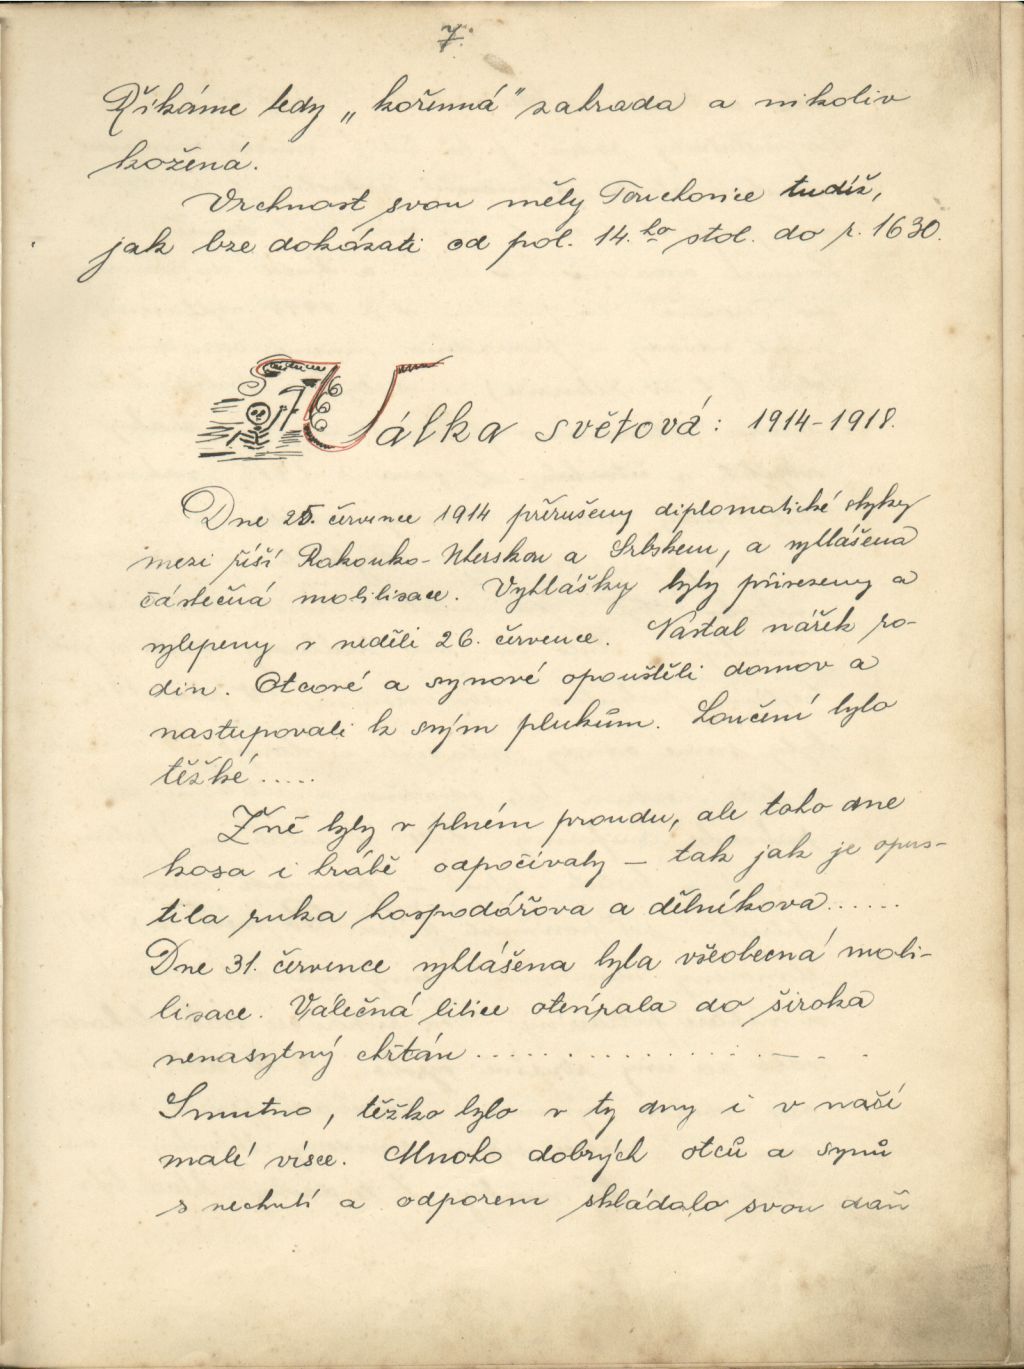 7.
Říkáme tedy „kořenná" zahrada a nikoliv
kožená.
Vrchnost svou měly Touchovice tudíž,
jak lze dokázati od pol. 14.ho stol. do r. 1630.
Válka světová: 1914-1918.
Dne 25. července 1914 přerušeny diplomatické styky
mezi říší Rakousko-Uherskou a Srbskem, a vyhlášena
částečná mobilisace. Vyhlášky byly přivezeny a
vylepeny v neděli 26. července. Nastal nářek ro-
din. Otcové a synové opouštěli domov a
nastupovali k svým plukům. Loučení bylo
těžké .....
Žně byly v plném proudu, ale toho dne
kosa i hrábě odpočívaly – tak jak je opus-
tila ruka hospodářova a dělníkova......
Dne 31. července vyhlášena byla všeobecná mobi-
lisace. Válečná litice otevírala do široka
nenasytný chřtán ..................
Smutno, těžko bylo v ty dny i v naší
malé vísce. Mnoho dobrých otců a synů
s nechutí a odporem skládalo svou daň